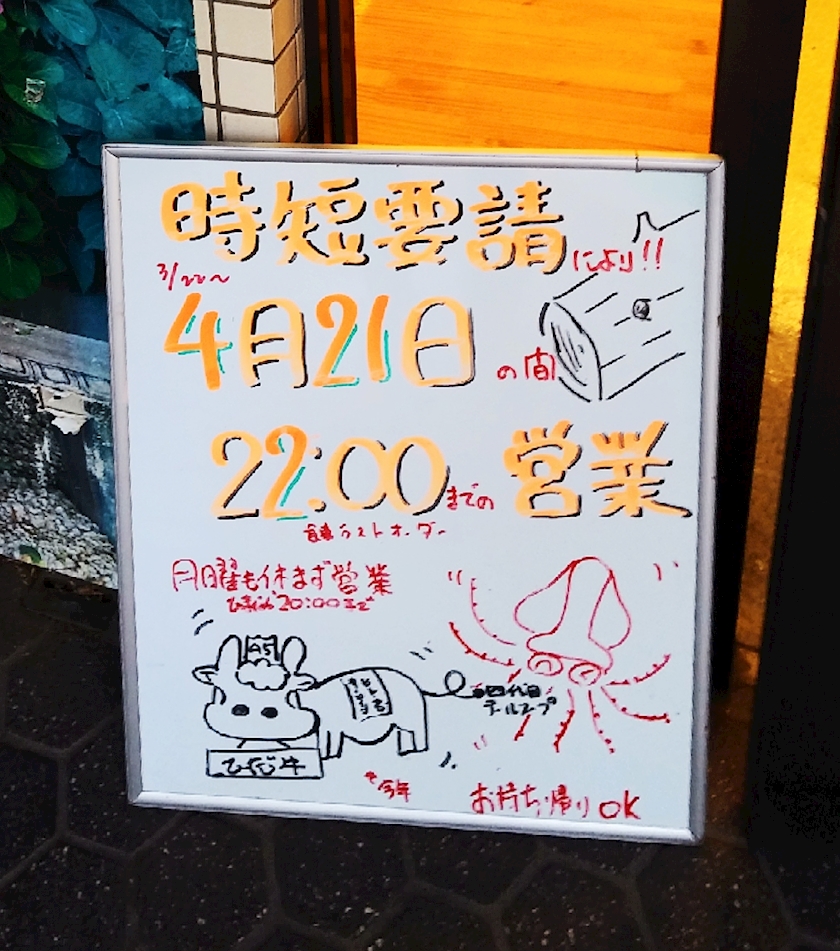 時短要請により!!
3/22〜
4月21日の間
22:00までの営業
ラストオーダー
月曜も休まず営業
20:00まで
四代目
テールスープ
ひだ牛
今年
お持ち帰りOK